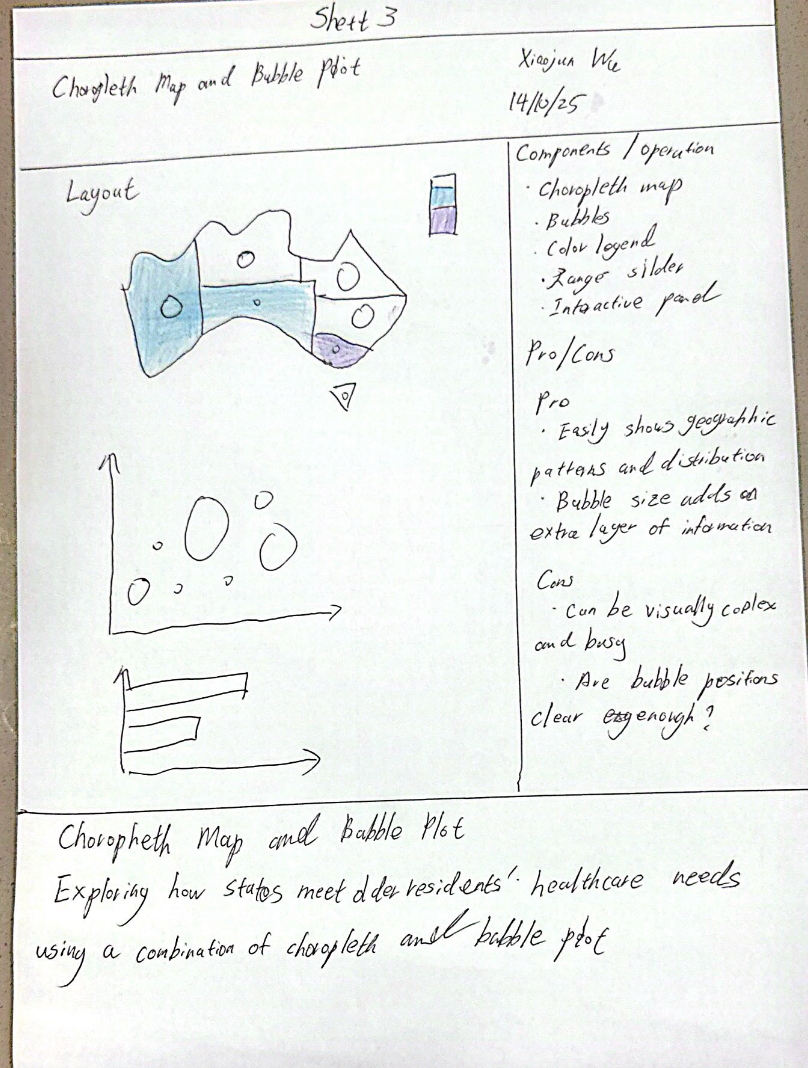 Sheet 3
Choropleth Map and Bubble Plot
Xiaojun Wu
14/10/25
Layout
Components / operation
· Choropleth map
· Bubbles
· Color legend
· Range silder
· Interactive panel
Pro/Cons
Pro
· Easily shows geographic
patterns and distribution
· Bubble size adds an
extra layer of information
Cons
· Can be visually coplex
and busy
· Are bubble positions
clear enough?
Choropheth Map and Bubble Plot
Exploring how states meet older residents' healthcare needs
using a combination of choropleth and bubble plot